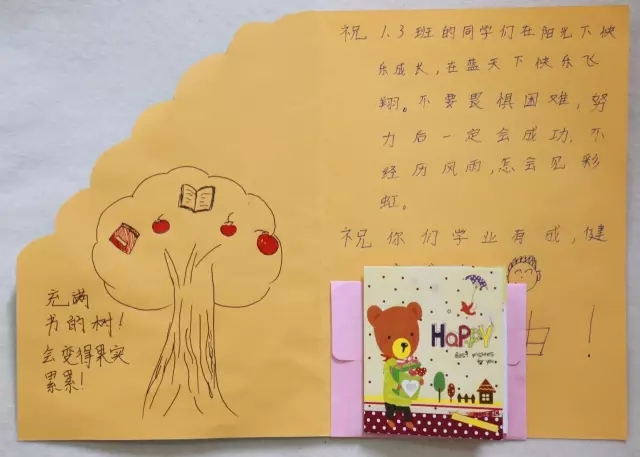 充满
书的树！
会变得果实
累累！
祝1.3班的同学们在阳光下快
乐成长，在蓝天下快乐飞
翔。不要畏惧困难，努
力后一定会成功，不
经历风雨，怎会见彩
虹。
祝你们学业有成，健
HaPPY
Best wishes
for you